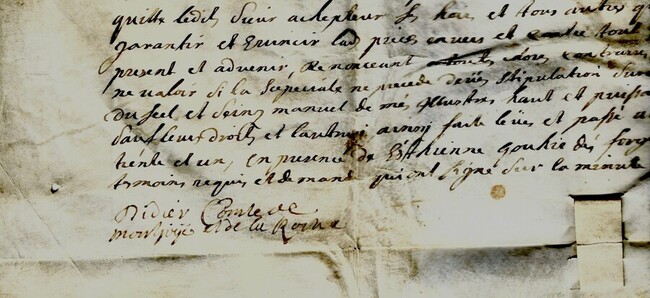 quitte ledit Sieur achepteur ses hoirs et tous autres
garantir et Evincir envers et contre tous
present et advenir, Renonceant a toutes choses contraires
ne valoir si la Speciale ne precede stipulation
Du Seel et Seing manuel de mes Illustres haut et puissa
Sauf leurs droits et lautruy ainsy faite leües et passé
trente et un, En presence de Esthienne des forg
tesmoins requis et demand quiont signé sur la minute
Didier Comte de
et de la